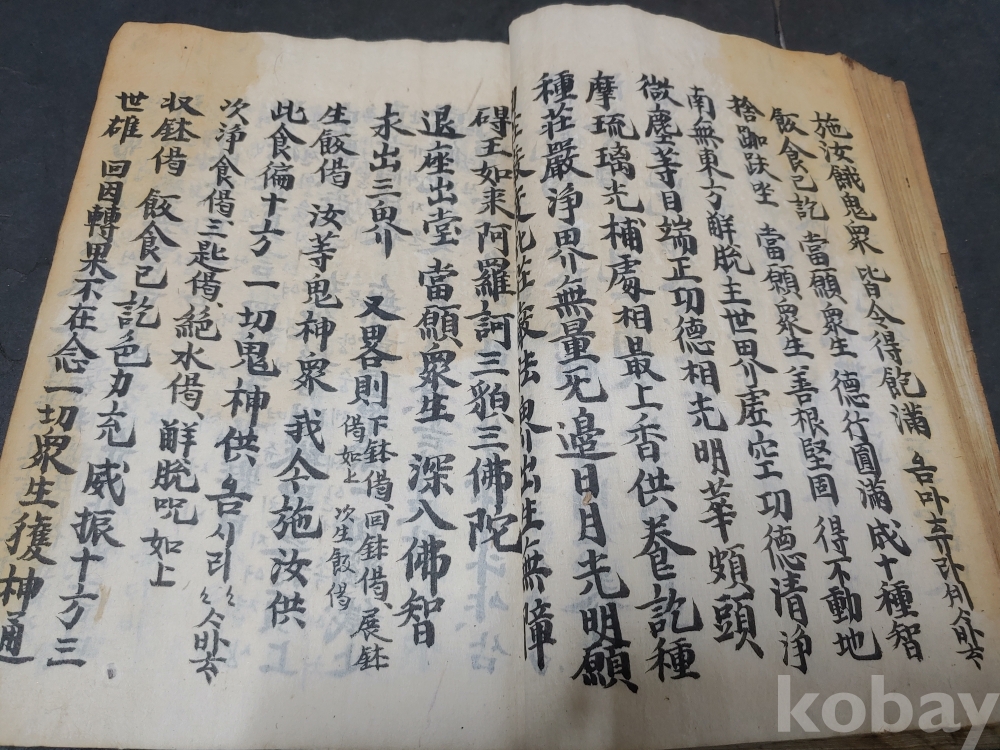 施汝餓鬼眾 皆令得飽滿 옴마휴라셰사바하
飯食已訖 當願眾生 德行圓滿成十種智
捨跏趺坐 當願眾生善根堅固 得不動地
南無東方解脫主世界虛空功德清淨
微塵等目端正功德相光明華頗頭
摩琉璃光補處相最上香供養訖種
種莊嚴淨界無量无邊日月光明願
莊嚴法界出生無障
碍王如来阿羅訶三藐三佛陀
退座出堂 當願眾生 深入佛智
永出三界 又畧則下鉢偈、回鉢偈、展鉢
偈如上 次生飯偈
生飯偈 汝等鬼神眾 我今施汝供
此食徧十方 一切鬼神供 옴시리〻 사바하
次淨食偈、三匙偈、絕水偈、解脫呪 如上
収鉢偈 飯食已訖色力充 威振十方三
世雄 回因轉果不在念一切眾生獲神通
kobay